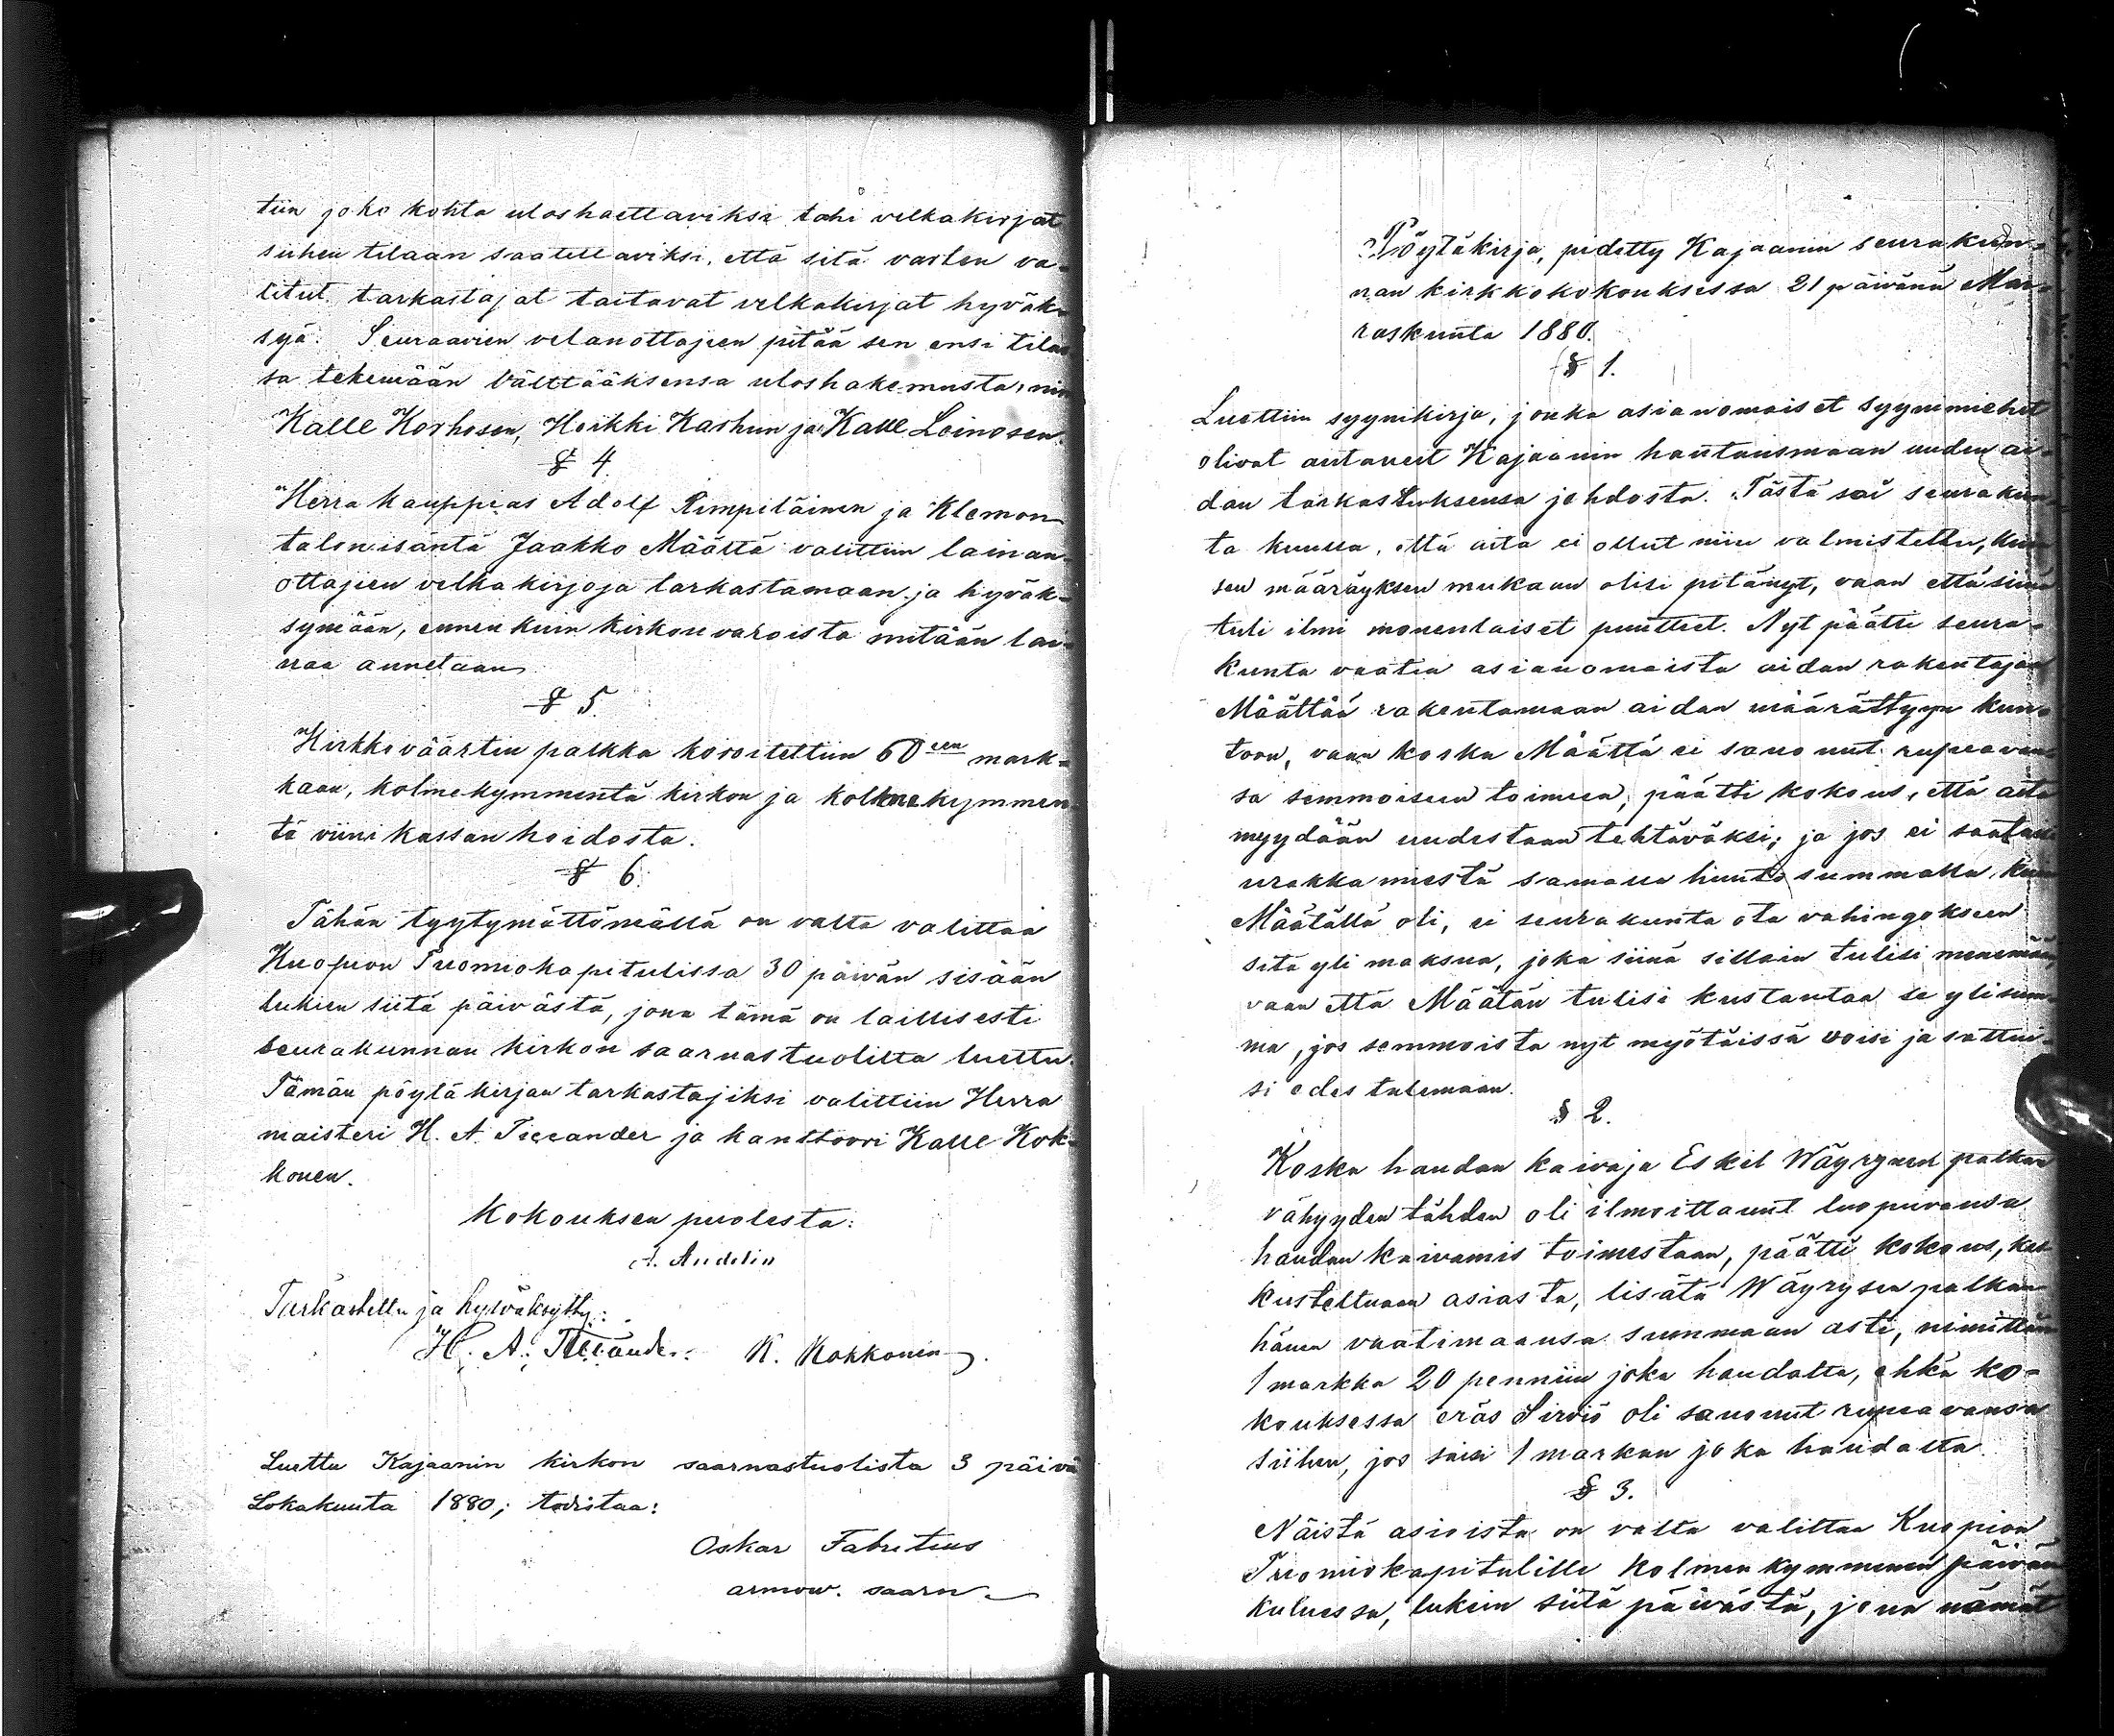 tiin joko kohta uloshaettaviksi tahi velkakirjat
siihen tilaan saatettaviksi, että sitä varten va-
litut tarkastajat taitavat velkakirjat hyväk-
syä. Seuraavien velanottajien pitää sen ensi tilas
sa tekemään välttääksensä uloshakemusta, nim
Kalle Korhosen, Heikki Karhun ja Kalle Leinosen.
§ 4.
Herra kauppias Adolf Rimpiläinen ja Klemon
talonisäntä Jaakko Määttä valittiin lainan
ottajien velkakirjoja tarkastamaan ja hyväk-
symään, ennen kuin kirkon varoista mitään lai-
naa annetaan
§ 5.
Kirkkoväärtin palkka koroitettiin 60een mark-
kaan, kolmekymmentä kirkon ja kolmekymmen
tä viinikassan hoidosta.
§ 6.
Tähän tyytymättömällä on valta valittaa
Kuopion Tuomiokapitulissa 30 päivän sisään
lukien siitä päivästä, jona tämä on laillisesti
seurakunnan kirkon saarnastuolilta luettu.
Tämän pöytäkirjan tarkastajiksi valittiin Herra
maisteri H. A. Teceander ja kanttoori Kalle Kok-
konen.
Kokouksen puolesta:
A. Andelin
Tarkastettu ja hyväksytty:
H. A. K. Kokkonen
Luettu Kajaanin kirkon saarnastuolista 3 päivä
Lokakuuta 1880; todistaa:
Oskar Fabritius
armow. saarn.
Pöytäkirja, pidetty Kajaanin seurakun-
nan kirkkokokouksessa 21 päivänä Mar-
raskuuta 1880.
§ 1.
Luettiin syynikirja, jonka asianomaiset syynimiehet
olivat antaneet Kajaanin hautausmaan uuden ai-
dan tarkastuksensa johdosta. Tästä sai seurakun
ta kuulla, että aita ei ollut niin valmistettu, kuin
sen määräyksen mukaan olisi pitänyt, vaan että siinä
tuli ilmi monenlaiset puutteet. Nyt päätti seura-
kunta vaatia asianomaista aidan rakentajaa
Määttää rakentamaan aidan määrättyyn kun-
toon, vaan koska Määttä ei sanonut rupeavan
sa semmoiseen toimeen, päätti kokous, että aita
myydään uudestaan tehtäväksi; ja jos ei saataisi
urakkamiestä samalla huuto summalla kuin
Määtällä oli, ei seurakunta ota vahingokseen
sitä yli maksua, joka siinä silloin tulisi menemään,
vaan että Määtän tulisi kustantaa se ylisum
ma, jos semmoista nyt myötäissä voisi ja sattui-
si edes tulemaan.
§ 2.
Koska haudan kaivaja Eskil Wäyrynen palkan
vähyyden tähden oli ilmoittanut luopuvansa
haudan kaivamis toimestaan, päätti kokous, kes
kusteltuaan asiasta, lisätä Wäyrysen palkan
hänen vaatimaansa summaan asti, nimittäin
1 markka 20 penniin joka haudalta, ehkä ko-
kouksessa eräs Sirviö oli sanonut rupeavansa
siihen, jos saisi 1 markan joka haudalta
§ 3.
Näistä asioista on valta valittaa Kuopion
Tuomiokapitulille kolmenkymmenen päivän
kuluessa, lukein siitä päivästä, jona nämät